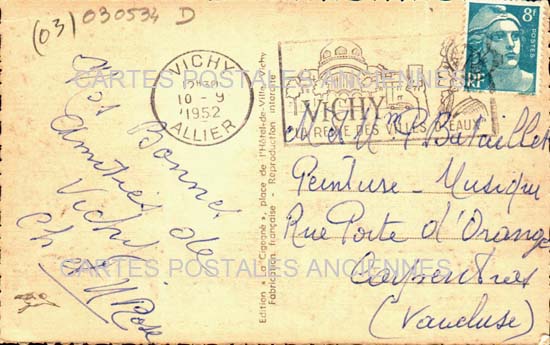 (03) 030534 D
VICHY
10 - 9
1952
ALLIER
VICHY
LA REINE DES VILLES D'EAUX
8f
POSTES
RF
CARTES POSTALES ANCIENNES
Nos Bonnes
Amitiés de
Vichy
Ch
Rose
Edition « La Cigogne », place de l'Hôtel-de-Ville, Vichy
Fabrication française - Reproduction interdite
M et
Bataillet
Peinture - Musique
Rue Porte d'Orange
Carpentras
(Vaucluse)
CARTES POSTALES ANCIENNES